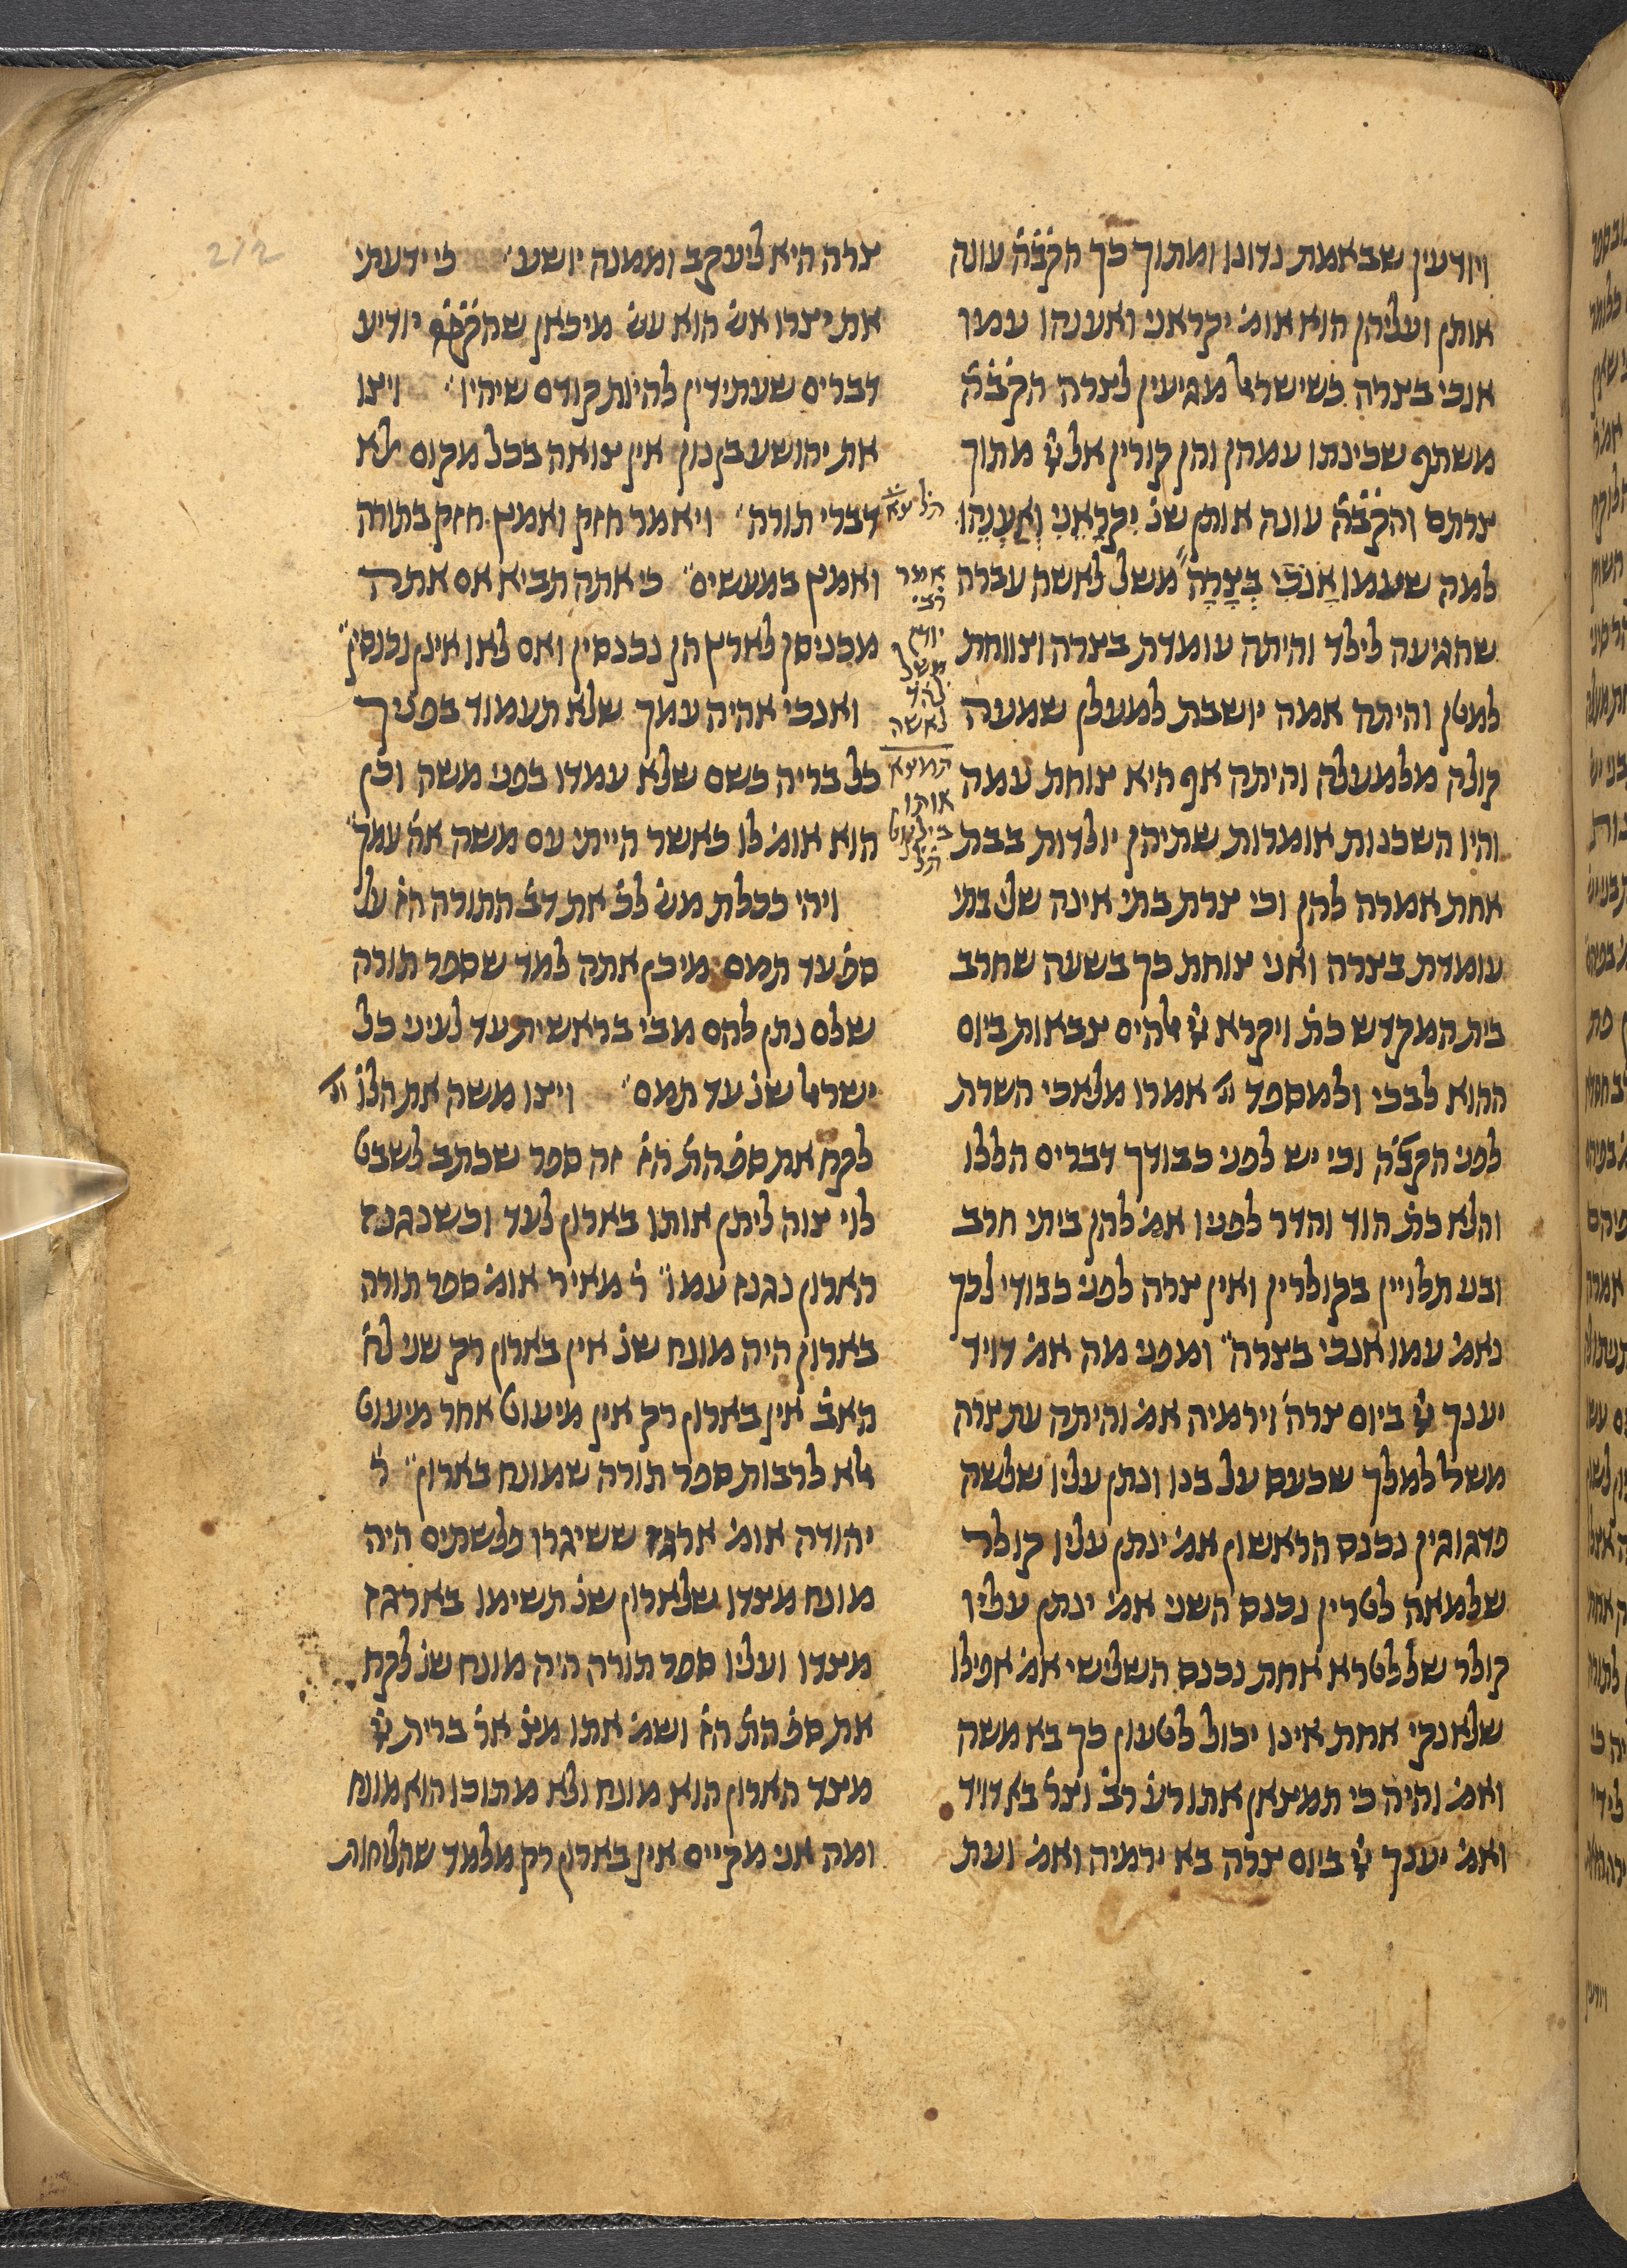 ויודעין שבאמת נדונו ומתוך כך הקבֹּהֹ עונה
אותן ועליהן הוא אומ' יקראני ואענהו עמו
אנכי בצרה כשישראל מגיעין לצרה הקבֹּהֹ
משתף שכינתו עמהן והן קורין אל יי מתוך
צרתם והקבֹּהֹ עונה אותן שנ' יִקְרָאֵנִי וְאֶעֱנֵהוּ
למה שעמו אָנֹכִי בְצָרָה" משל לאשה עברה
שהגיעה לילד והיתה עומדת בצרה וצווחת
למטן והיתה אמה יושבת למעלן שמעה
קולה מלמעלה והיתה אף היא צוחת עמה
והיו השכנות אומרות שתיהן יולדות בבת
אחת אמרה להן וכי צרת בתי אינה שלי בתי
עומדת בצרה ואני צוחת כך בשעה שחרב
בית המקדש כת' ויקרא יי אלהים צבאות ביום
ההוא לבכי ולמספד וג' אמרו מלאכי השרת
לפני הקבֹּהֹ וכי יש לפני כבודך דברים הללו
והלא כת' הוד והדר לפניו אמ' להן ביתי חרב
ובני תלויין בקולרין ואין צרה לפני כבודי לכך
נאמ' עמו אנכי בצרה" ומפני מה אמ' דויד
יענך יי ביום צרה וירמיה אמ' והיתה עת צרה
משל למלך שכעס על בנו ונתן עליו שלשה
פדגוגין נכנס הראשון אמ' ינתן עליו קולר
שלמאה לטרין נכנס השני אמ' ינתן עליו
קולר שללטרא אחת נכנס השלישי אמ' אפילו
שלאנקי אחת אינו יכול לטעון כך בא משה
ואמ' והיה כי תמצאן אתו רע' רב' וצר' בא דויד
ואמ' יענך יי ביום צרה בא ירמיה ואמ' ועת
אמר
רבי
יודן
משל
לאשה
תמצא
אותו
צרה היא ליעקב וממנה יושע" כי ידעתי
את יצרו אש' הוא עש' מיכאן שהקבה יודיע
דברים שעתידין להיות קודם שיהיו" ויצו
את יהושע בן נון אין צואה בכל מקום אלא
דברי תורה" ויאמר חזק ואמץ חזק בתורה
ואמץ במעשים" כי אתה תביא אם אתה
מכניסן לארץ הן נכנסין ואם לאו אינן נכנסין"
ואנכי אהיה עמך שלא תעמוד בפניך
כל בריה כשם שלא עמדו בפני משה וכן
הוא אומ' לו כאשר הייתי עם משה אה' עמך"
ויהי ככלת מש' לכ' את דב' התורה הז' על
ספ' עד תמם מיכן אתה למד שספר תורה
שלם נתן להם מבי בראשית עד לעיני כל
ישראל שנ' עד תמם" ויצו משה את הלו' וג'
לקח את ספ' הת' הז' זה ספר שכתב לשבט
לוי צוה ליתן אותו בארון לעד וכשנגנז
הארון נגנז עמו" ר' מאיר אומ' ספר תורה
בארון היה מונח שנ' אין בארון רק שני לח'
האב' אין בארון רק אין מיעוט אחר מיעוט
אלא לרבות ספר תורה שמונח בארון" ר'
יהודה אומ' ארגז ששיגרו פלשתים היה
מונח מצדו שלארון שנ' תשימו בארגז
מצדו ועליו ספר תורה היה מונח שנ' לקח
את ספ' הת' הז' ושמ' אתו מצ' אר' ברית יי
מצד הארון הוא מונח ולא מתוכו הוא מונח
ומה אני מקיים אין בארון רק מלמד שהלוחות